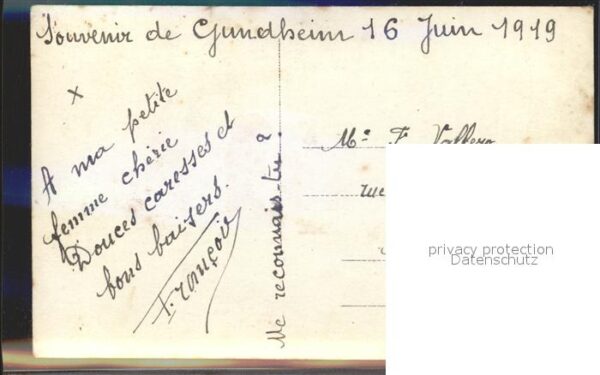 Souvenir de Gundheim 16 Juin 1919
x
A ma petite
femme chérie
Douces caresses et
bons baisers.
François
Me reconnais-tu ?
Me F. Vallero
rue
privacy protection
Datenschutz